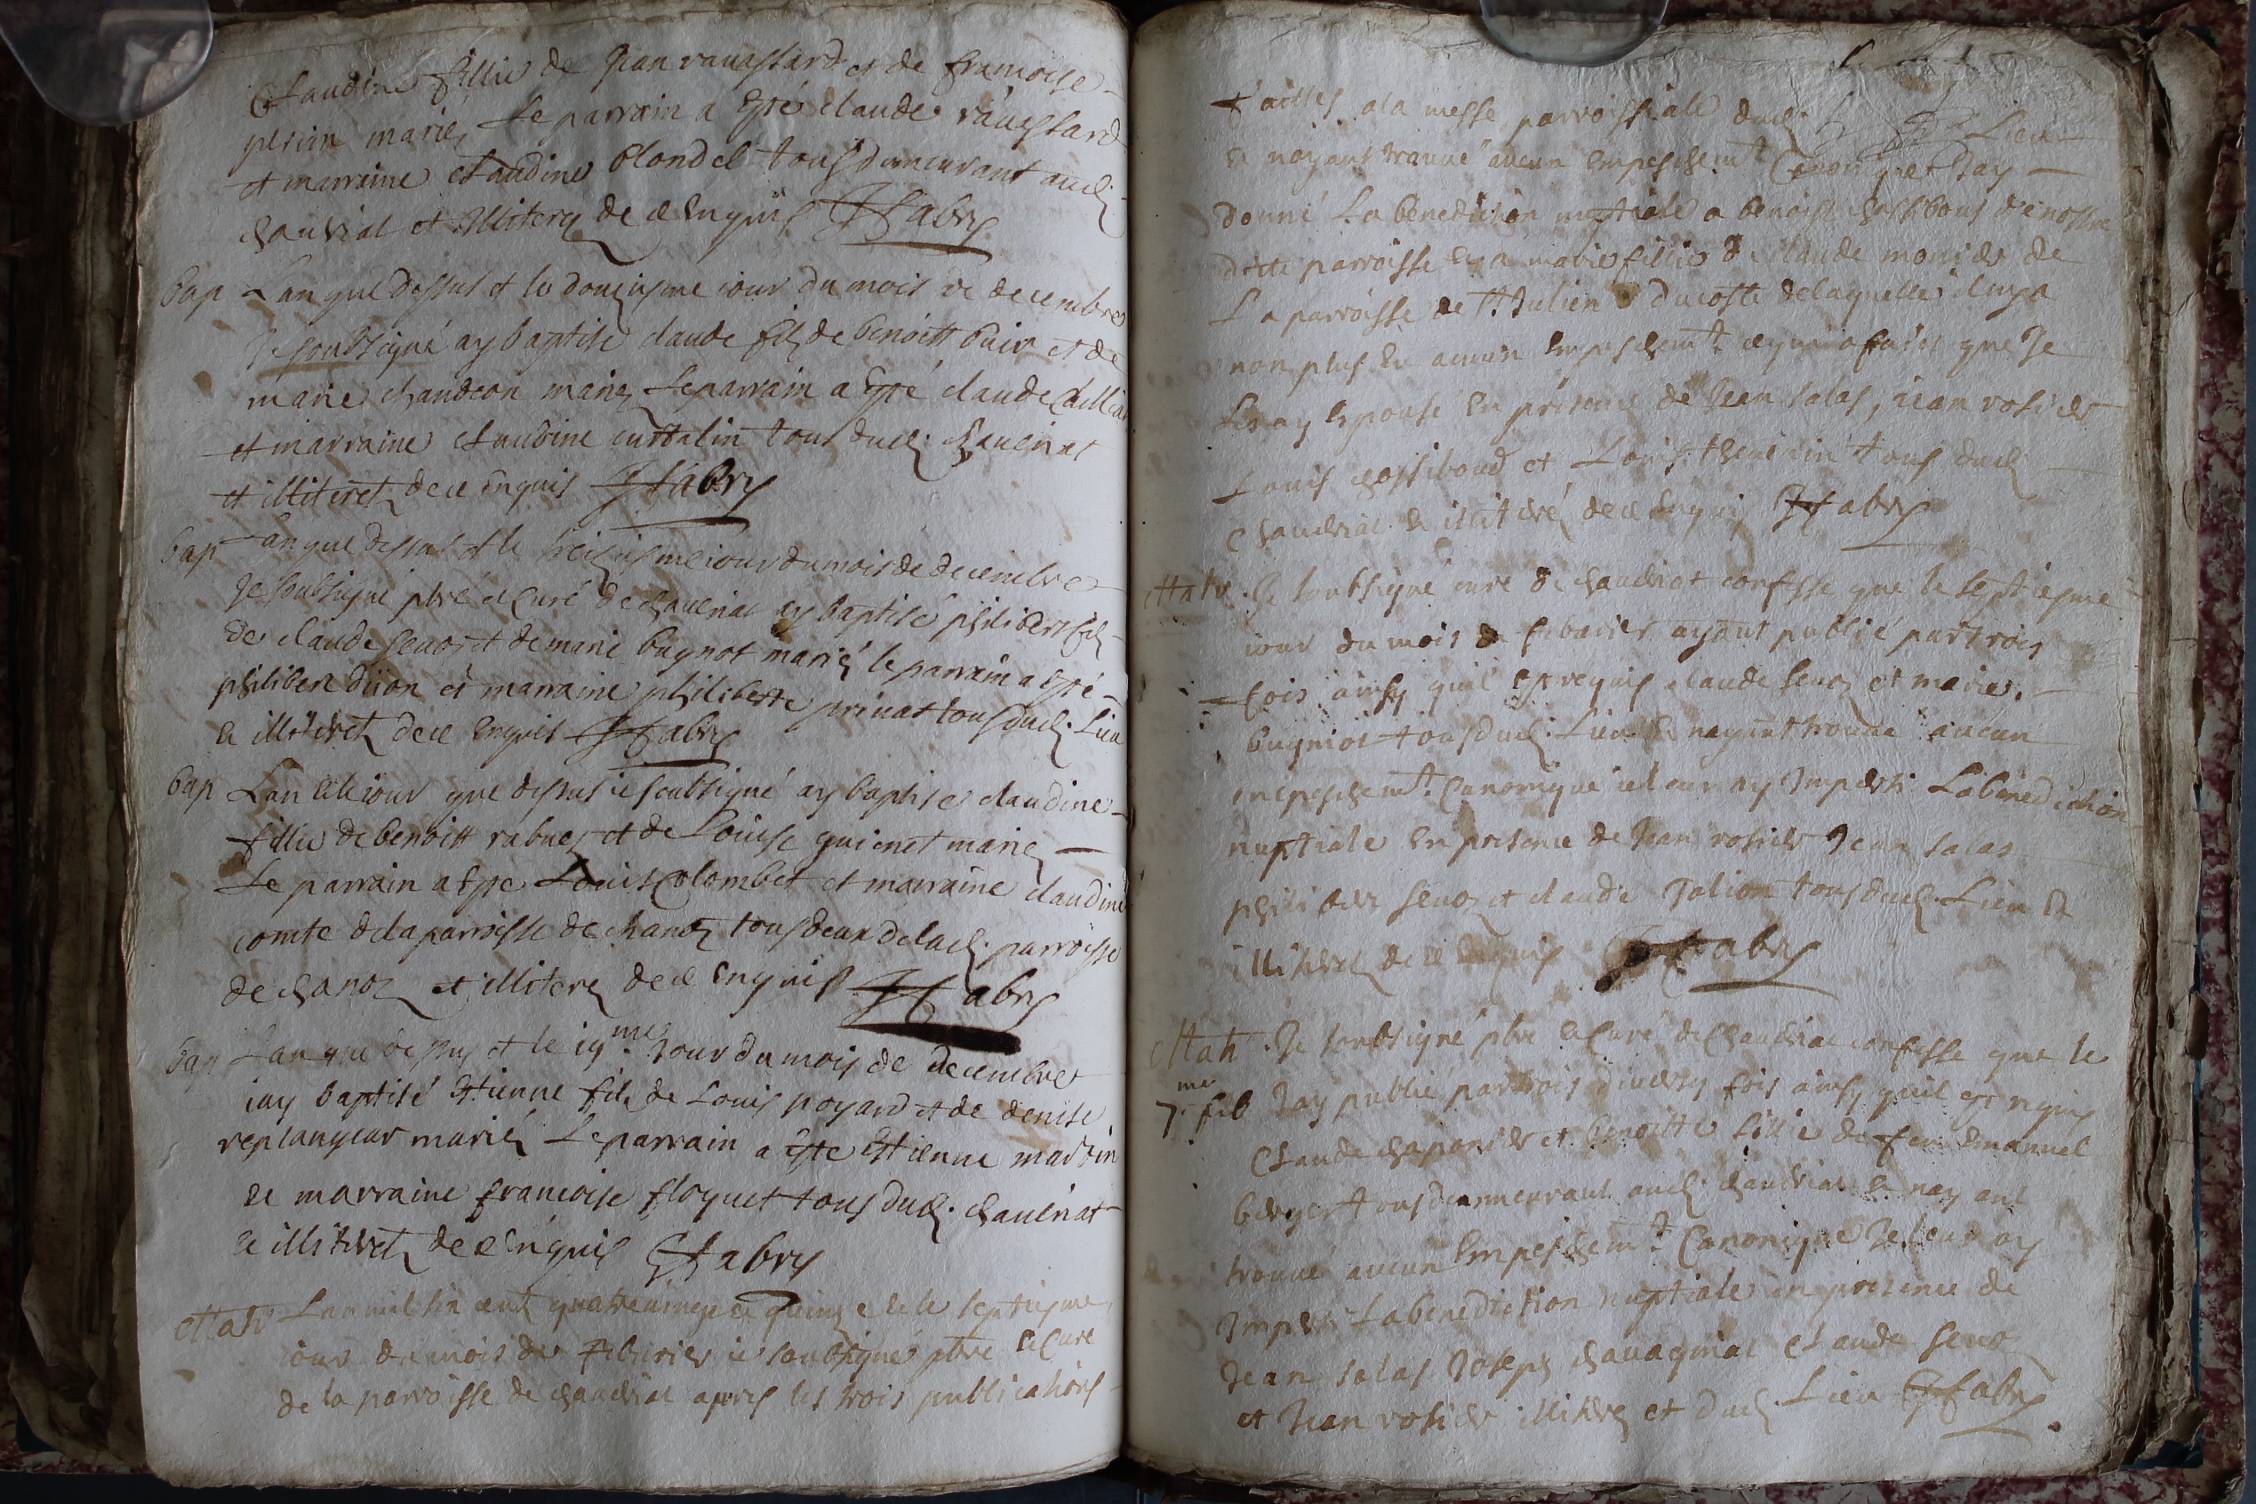 Claudine fillie de Jean ravassard et de francoise
perrin mariés Le parrain a esté claude ravassard
et marraine claudine blondel tous demeurant audi
chaveriat et illiterez de ce enquis Fabry
bap Lan que dessus et le douziesme iour du mois de decembre
Je soubsigné ay baptisé claude filz de benoist buir et de
marie chandeon mariez Le parrain a esté claude
et marraine claudine cuttalin tous dud. chaveriat
et illiteretz de ce enquis Fabry
bap Lan que dessus et le treiziesme iour du mois de decembre
Je soubsigné pbre et curé de chaveriat ay baptisé philibert filz
de claude sevoz et de marie bugnot mariéz le parrain a esté
philibert dijon et marraine philiberte privat tous dud. Lieu
et illiteretz de ce enquis Fabry
bap Lan et le iour que dessus ie soubsigné ay baptisé claudine
fillie de benoist rabuez et de Louise guienet mariez
Le parrain a este Louis Colombet et marraine claudine
comte de la parroisse de chanoz tous deux de lad. parroisse
de chanoz et illiterez de ce enquis Fabry
bap Lan que dessus et le 19.me Jour du mois de decembre
iay baptisé Estienne filz de Louis poyard et de denise
replangear mariéz Le parrain a este Estienne martin
et marraine francoise floquet tous dud. chaveriat
et illiteretz de ce enquis Fabry
Mar Lan mil six cent quatre vingt et quinze et le septiesme
iour du mois de feburier ie soubsigné pbre et curé
de la parroisse de chaveriat apres les trois publications
faittes a la messe parroissiale dud. Lieu
et nayant trouué aucun empeschemt. Canonique Jay
donné La benediction nuptiale a benoist chossibous de nostre
ditte parroisse et a marie fillie de claude monider de
La parroisse de St. Julien du coste de laquelle il ny a
non plus eu aucun empeschemt. ce qui a fait que Je
Les ay espousé en présence de Jean salas, iean rosier
Louis chossiboud et Louis thevenin tous dud.
chaveriat et illiteréz de ce enquis Fabry
Mar. Je soubsigné curé de chaveriat confesse que le septiesme
iour du mois de febvrier ayant publié par trois
fois ainsy quil est requis claude sevoz et marie
bugniot tous dud. Lieu et nayant trouué aucun
empeschemt. Canonique ie leur ay Imparti La benediction
nuptiale en presence de Jean rosier Jean salas
philiber sevoz et claude Jolion tous dud. Lieu et
illiteretz de ce enquis Fabry
Mar. Je soubsigné pbre et Curé de chaveriat confesse que le
7.me feb Jay publié par trois diverses fois ainsy quil est requis
Claude chaponier et benoitte fillie de feu emanuel
berger tous demeurant aud. chaveriat et nayant
trouué aucun Empeschemt. Canonique Je leur ay
Imparti La benediction nuptiale en presence de
Jean salas Joseph chavagniat claude sevoz
et Jean rosier illiterez et dud. Lieu Fabry